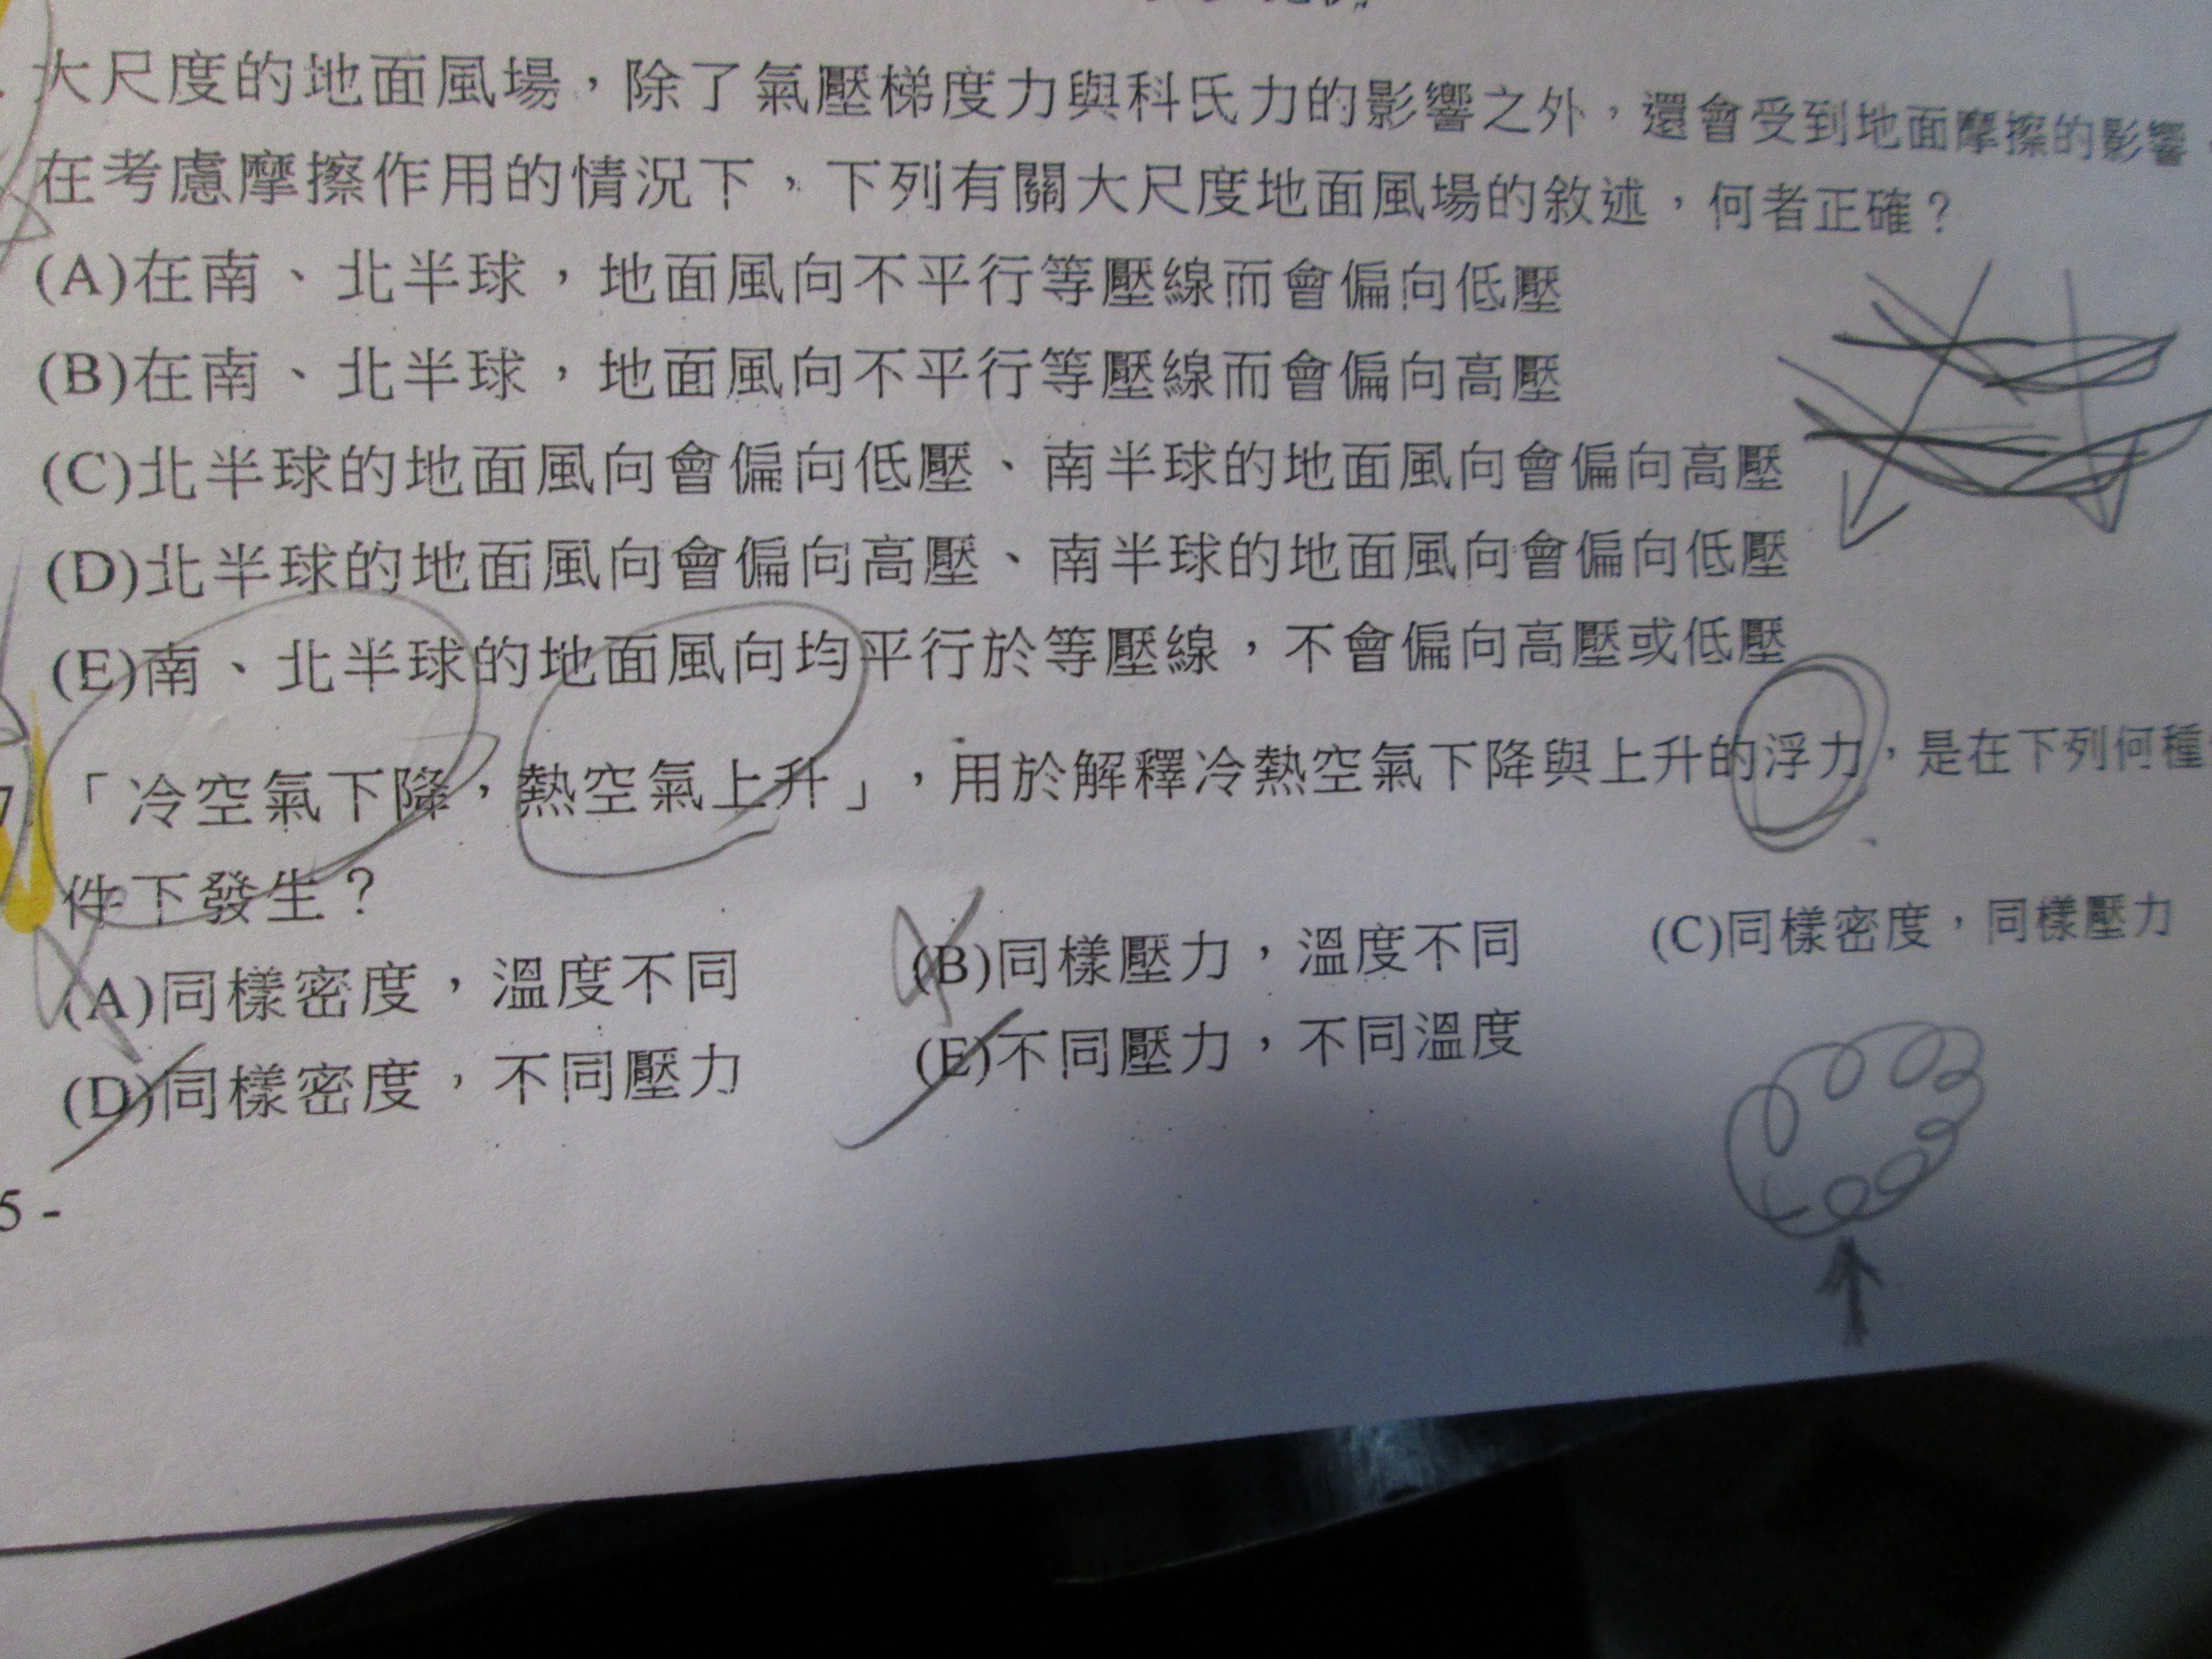 大尺度的地面風場，除了氣壓梯度力與科氏力的影響之外，還會受到地面摩擦的影響，
在考慮摩擦作用的情況下，下列有關大尺度地面風場的敘述，何者正確？
(A)在南、北半球，地面風向不平行等壓線而會偏向低壓
(B)在南、北半球，地面風向不平行等壓線而會偏向高壓
(C)北半球的地面風向會偏向低壓、南半球的地面風向會偏向高壓
(D)北半球的地面風向會偏向高壓、南半球的地面風向會偏向低壓
(E)南、北半球的地面風向均平行於等壓線，不會偏向高壓或低壓
7.「冷空氣下降，熱空氣上升」，用於解釋冷熱空氣下降與上升的浮力，是在下列何種
件下發生？
(A)同樣密度，溫度不同 (B)同樣壓力，溫度不同 (C)同樣密度，同樣壓力
(D)同樣密度，不同壓力 (E)不同壓力，不同溫度
5 -